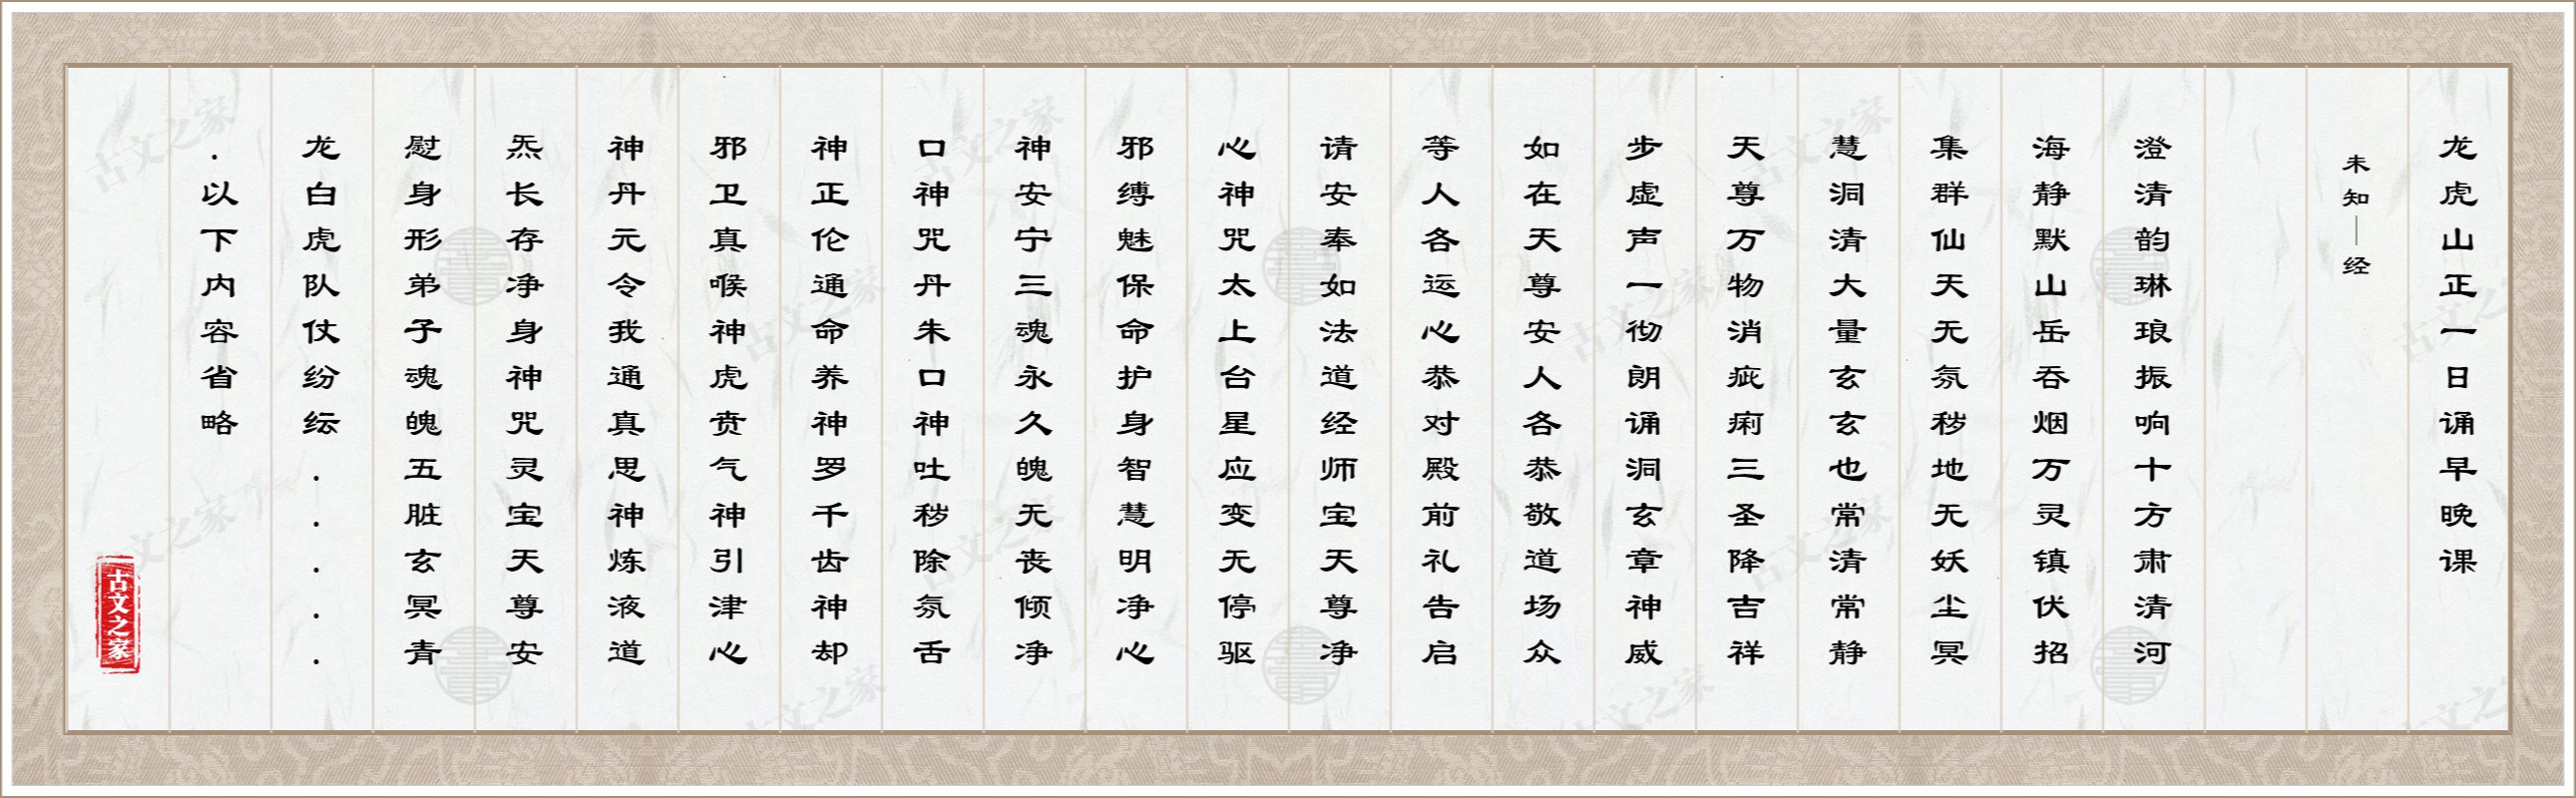 龙虎山正一日诵早晚课
未知｜经
澄清韵琳琅振响十方肃清河
海静默山岳吞烟万灵镇伏招
集群仙天无氛秽地无妖尘冥
慧洞清大量玄玄也常清常静
天尊万物消疵痾三圣降吉祥
步虚声一彻朗诵洞玄章神威
如在天尊安人各恭敬道场众
等人各运心恭对殿前礼告启
请安奉如法道经师宝天尊净
心神咒太上台星应变无停驱
邪缚魅保命护身智慧明净心
神安宁三魂永久魄无丧倾净
口神咒丹朱口神吐秽除氛舌
神正伦通命养神罗千齿神却
邪卫真喉神虎贲气神引津心
神丹元令我通真思神炼液道
炁长存净身神咒灵宝天尊安
慰身形弟子魂魄五脏玄冥青
龙白虎队仗纷纭.....
.以下内容省略
古文之家